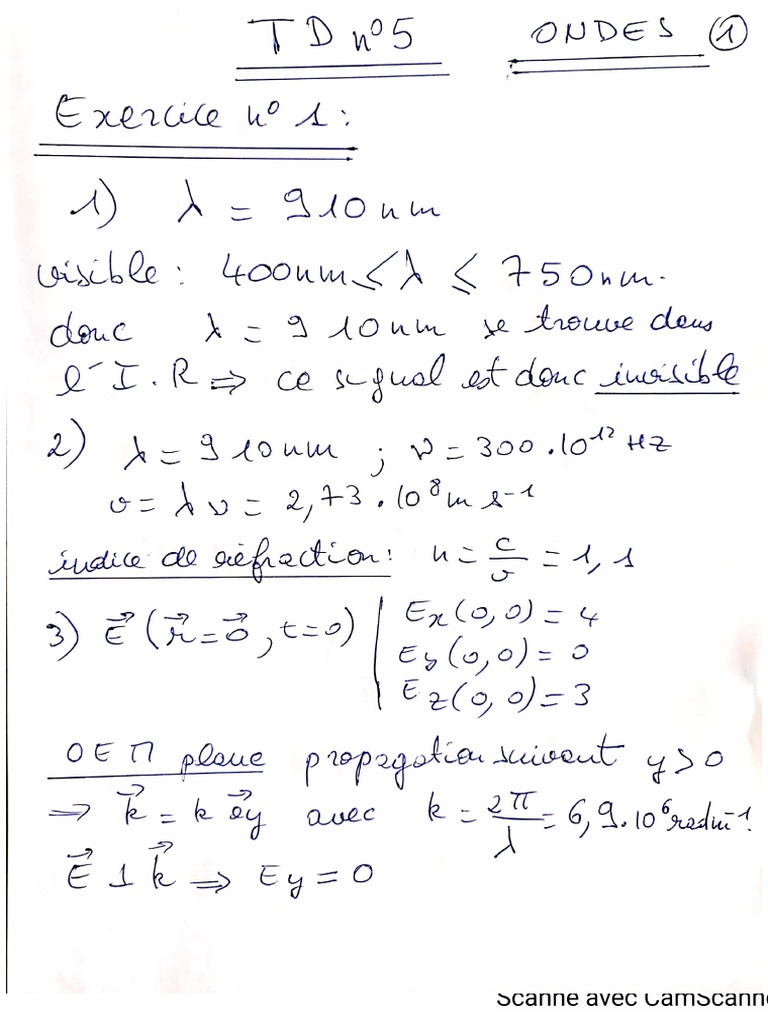 TD n°5 ONDES ①
Exercice n° 1 :
1) λ = 910 nm
visible : 400nm ≤ λ ≤ 750nm.
donc λ = 910nm se trouve dans
l'I.R ⇒ ce signal est donc invisible
2) λ = 910nm ; ν = 300.10¹² Hz
v = λν = 2,73.10⁸ m s⁻¹
indice de réfraction : n = c/v = 1,1
3) E⃗ (r⃗ = 0⃗, t=0) | Ex(0,0) = 4
Ey(0,0) = 0
Ez(0,0) = 3
OEM plane propagation suivant y>0
⇒ k⃗ = k e⃗y avec k = 2π/λ = 6,9.10⁶ radm⁻¹.
E⃗ ⊥ k⃗ ⇒ Ey = 0
Scanné avec CamScanne